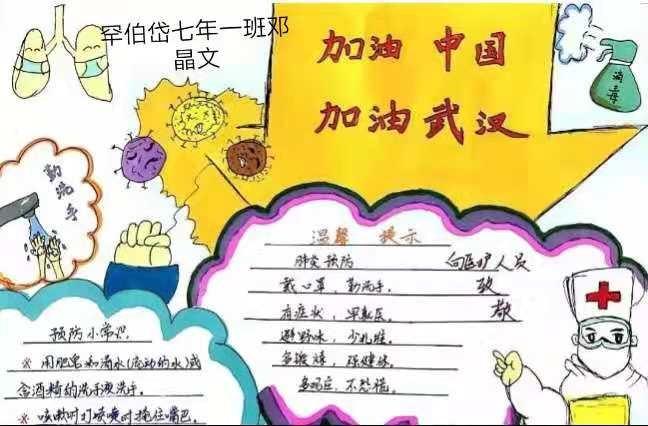 罕伯岱七年一班邓
晶文
加油 中国
加油武汉
消毒
勤洗手
温馨 提示
肺炎预防
戴口罩,勤洗手。
有症状,早就医。
避野味,少扎堆。
多锻炼,强健体。
多吗应,不恐慌。
向医护人员
致
敬
预防小常识
※ 用肥皂和清水(流动的水)或
含酒精的洗手液洗手。
※ 咳嗽时打喷嚏时掩住嘴巴。